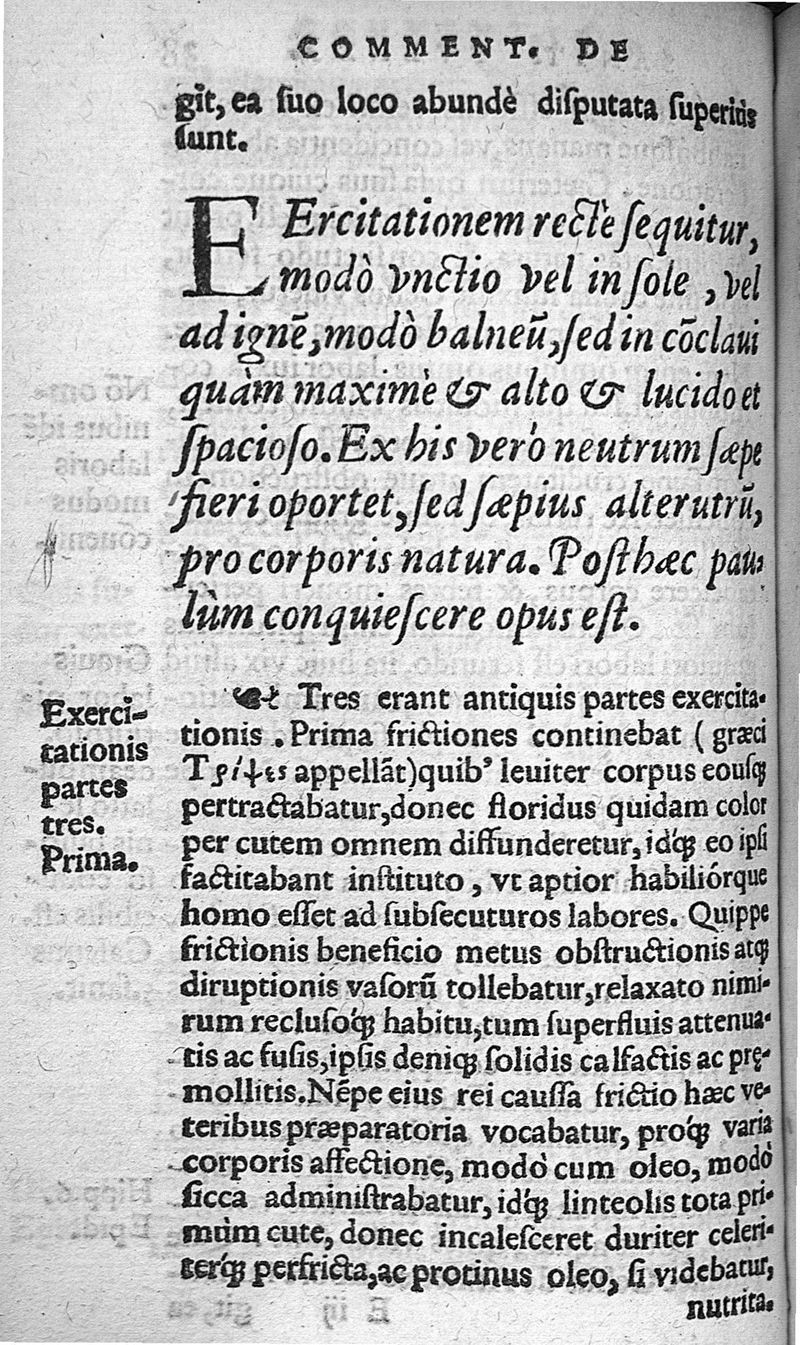 COMMENT. DE
git, ea ſuo loco abundè diſputata ſuperiùs
ſunt.
EErcitationem rectè ſequitur,
modò vnctio vel in ſole, vel
ad ignē, modò balneū, ſed in cōclaui
quàm maximè & alto & lucido et
ſpacioſo. Ex his verò neutrum ſæpe
fieri oportet, ſed ſæpius alterutrū,
pro corporis natura. Poſt hæc pau-
lùm conquieſcere opus eſt.
☙ Tres erant antiquis partes exercita-
tionis. Prima frictiones continebat (græci
Τρίψεις appellāt) quib’ leuiter corpus eouſq;
pertractabatur, donec floridus quidam color
per cutem omnem diffunderetur, idq́; eo ipſi
factitabant inſtituto, vt aptior habiliórque
homo eſſet ad ſubſecuturos labores. Quippe
frictionis beneficio metus obſtructionis atq;
diruptionis vaſorū tollebatur, relaxato nimi-
rum recluſoq́; habitu, tum ſuperfluis attenua-
tis ac fuſis, ipſis deniq; ſolidis calfactis ac prę-
mollitis. Nēpe eius rei cauſſa frictio hæc ve-
teribus præparatoria vocabatur, proq́; varia
corporis affectione, modò cum oleo, modò
ſicca adminiſtrabatur, idq́; linteolis tota pri-
mùm cute, donec incaleſceret duriter celeri-
terq́; perfricta, ac protinus oleo, ſi videbatur,
nutrita.
Exerci-
tationis
partes
tres.
Prima.